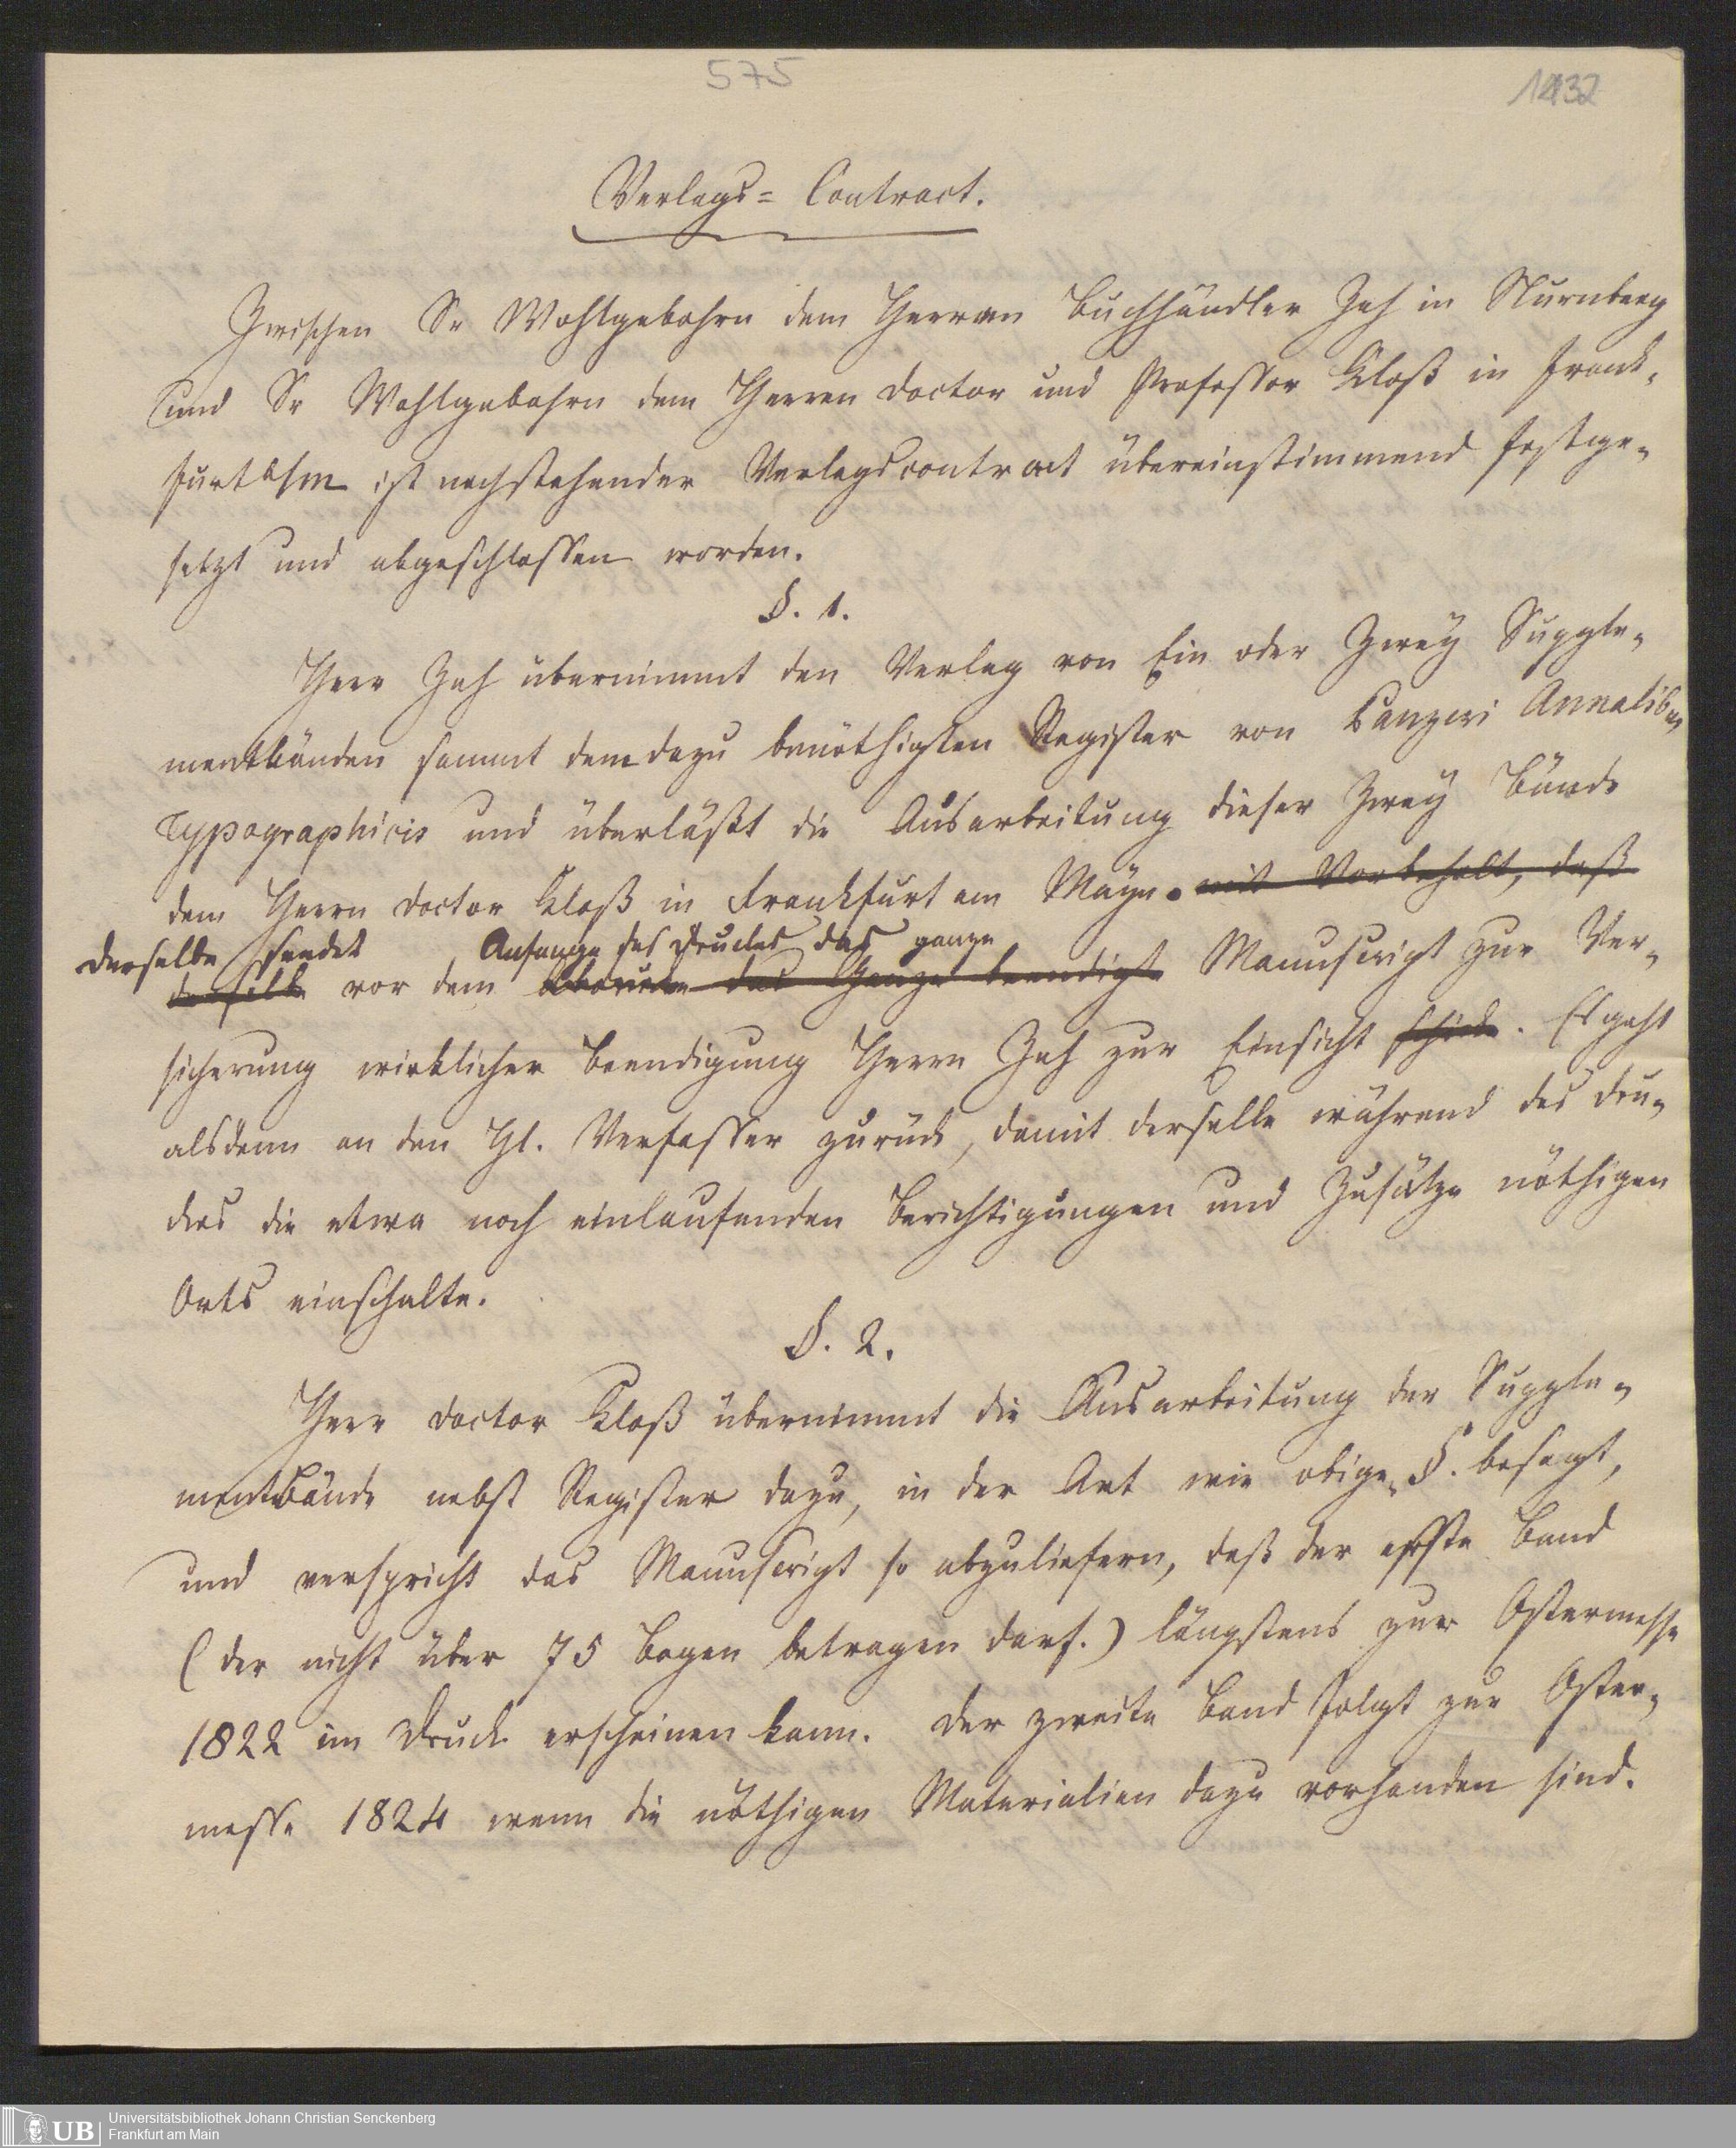 575
1432
Verlags= Contract.
Zwischen Sr Wohlgebohrn dem Herren Buchhändler Zeh in Nurnberg
und Sr Wohlgebohrn dem Herren Doctor und Professor Kloß in Frank-
furt a/m ist nachstehender Verlagscontract übereinstimmend festge-
setzt und abgeschlossen worden.
§. 1.
Herr Zeh übernimmt den Verlag von Ein oder Zwey Supple-
mentbänden sammt dem dazu benöthigten Register von Panzeri Annalibus
Typographicis und überläßt die Ausarbeitung dieser Zwey Bände
dem Herrn Doctor Kloß in Frankfurt am Mayn. mit Vorbehalt, daß
Derselbe sendet Anfange des Druckes das ganze
derselbe vor dem Abdrucke das Ganze beendigte Manuscript zur Ver-
sicherung wirklicher Beendigung Herrn Zeh zur Einsicht schicke. Es geht
alsdenn an den H. Verfasser zurück, damit derselbe während des Dru-
ckes die etwa noch einlaufenden Berichtigungen und Zusätze nöthigen
Orts einschalte.
§. 2.
Herr Doctor Kloß übernimmt die Ausarbeitung der Supple-
mentbände nebst Register dazu, in der Art wie obiger §. besagt,
und verspricht das Manuscript so abzuliefern, daß der erste Band
(der nicht über 75 Bogen betragen darf.) längstens zur Ostermesse
1822 im Druck erscheinen kann. Der zweite Band folgt zur Oster-
messe 1824 wenn die nöthigen Materialien dazu vorhanden sind.
UB Universitätsbibliothek Johann Christian Senckenberg
Frankfurt am Main